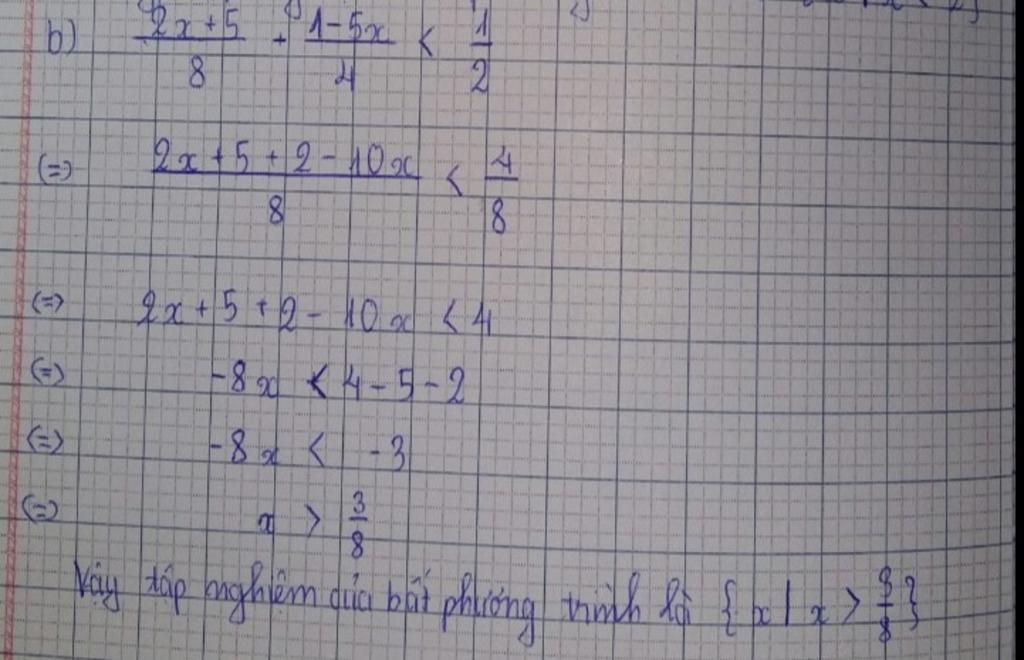 b) \frac{2x+5}{8} + \frac{1-5x}{4} < \frac{1}{2}
(=) \frac{2x+5+2-10x}{8} < \frac{4}{8}
(=) 2x+5+2-10x < 4
(=) -8x < 4-5-2
(=) -8x < -3
(=) x > \frac{3}{8}
Vậy tập nghiệm của bất phương trình là {x | x > \frac{3}{8}}